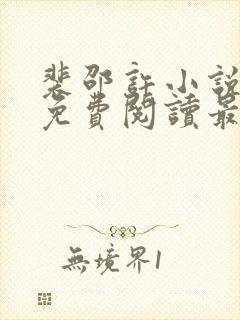 裴邵許小說
免費閱讀最
無境界1